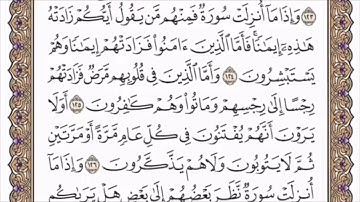 ١٢٣ وَإِذَا مَا أُنزِلَتْ سُورَةٌ فَمِنْهُم مَّن يَقُولُ أَيُّكُمْ زَادَتْهُ
هَٰذِهِۦٓ إِيمَٰنًا فَأَمَّا ٱلَّذِينَ ءَامَنُوا۟ فَزَادَتْهُمْ إِيمَٰنًا وَهُمْ
يَسْتَبْشِرُونَ ١٢٤ وَأَمَّا ٱلَّذِينَ فِى قُلُوبِهِم مَّرَضٌ فَزَادَتْهُمْ
رِجْسًا إِلَىٰ رِجْسِهِمْ وَمَاتُوا۟ وَهُمْ كَٰفِرُونَ ١٢٥ أَوَلَا
يَرَوْنَ أَنَّهُمْ يُفْتَنُونَ فِى كُلِّ عَامٍ مَّرَّةً أَوْ مَرَّتَيْنِ
ثُمَّ لَا يَتُوبُونَ وَلَا هُمْ يَذَّكَّرُونَ ١٢٦ وَإِذَا مَا
أُنزِلَتْ سُورَةٌ نَّظَرَ بَعْضُهُمْ إِلَىٰ بَعْضٍ هَلْ يَرَىٰكُم